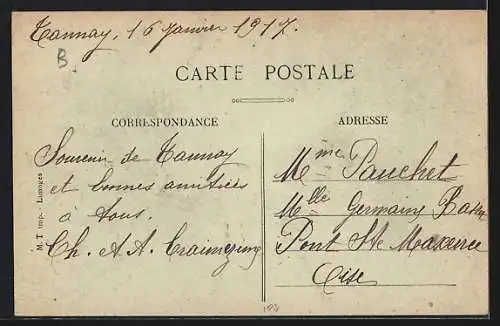 Tannay, 16 Janvier 1917.
B
CARTE POSTALE
CORRESPONDANCE
ADRESSE
Souvenir de Tannay
et bonnes amitiés
à tous.
Ch. A. A.
Mme Pauchet
Mlle Germaine
Pont Ste Maxence
Oise
M. T. imp. - Limoges